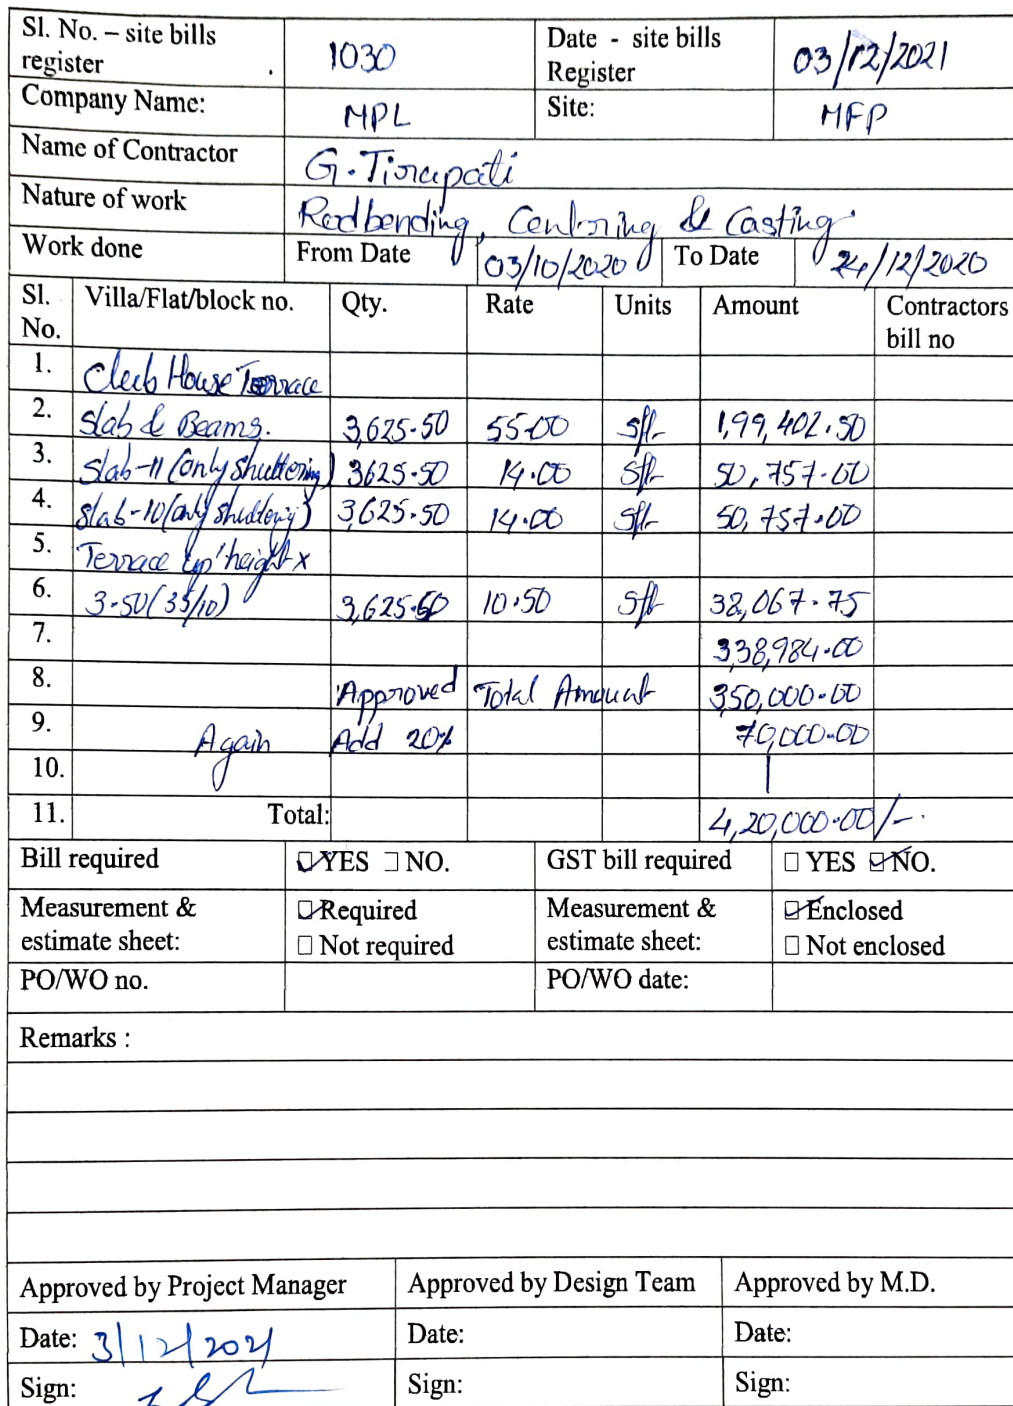 Sl. No. – site bills register . 1030 Date - site bills Register 03/12/2021
Company Name: MPL Site: MFP
Name of Contractor G. Tirupati
Nature of work Rodbending, Centring & Casting.
Work done From Date 03/10/2020 To Date 24/12/2020
Sl. No. Villa/Flat/block no. Qty. Rate Units Amount Contractors bill no
1. Club House Terrace
2. Slab & Beams. 3,625.50 55.00 sft 1,99,402.50
3. Slab-11 (only shuttering) 3625.50 14.00 sft 50,757.00
4. Slab-10 (only shuttering) 3,625.50 14.00 sft 50,757.00
5. Terrace height x
6. 3.50 (35/10) 3,625.50 10.50 sft 38,067.75
7. 338,984.00
8. Approved Total Amount 350,000.00
9. Again Add 20% 70,000.00
10.
11. Total: 4,20,000.00/-.
Bill required ☑ YES ☐ NO. GST bill required ☐ YES ☑ NO.
Measurement & estimate sheet: ☑ Required ☐ Not required Measurement & estimate sheet: ☑ Enclosed ☐ Not enclosed
PO/WO no. PO/WO date:
Remarks :
Approved by Project Manager Approved by Design Team Approved by M.D.
Date: 3/12/2021 Date: Date:
Sign: Sign: Sign: